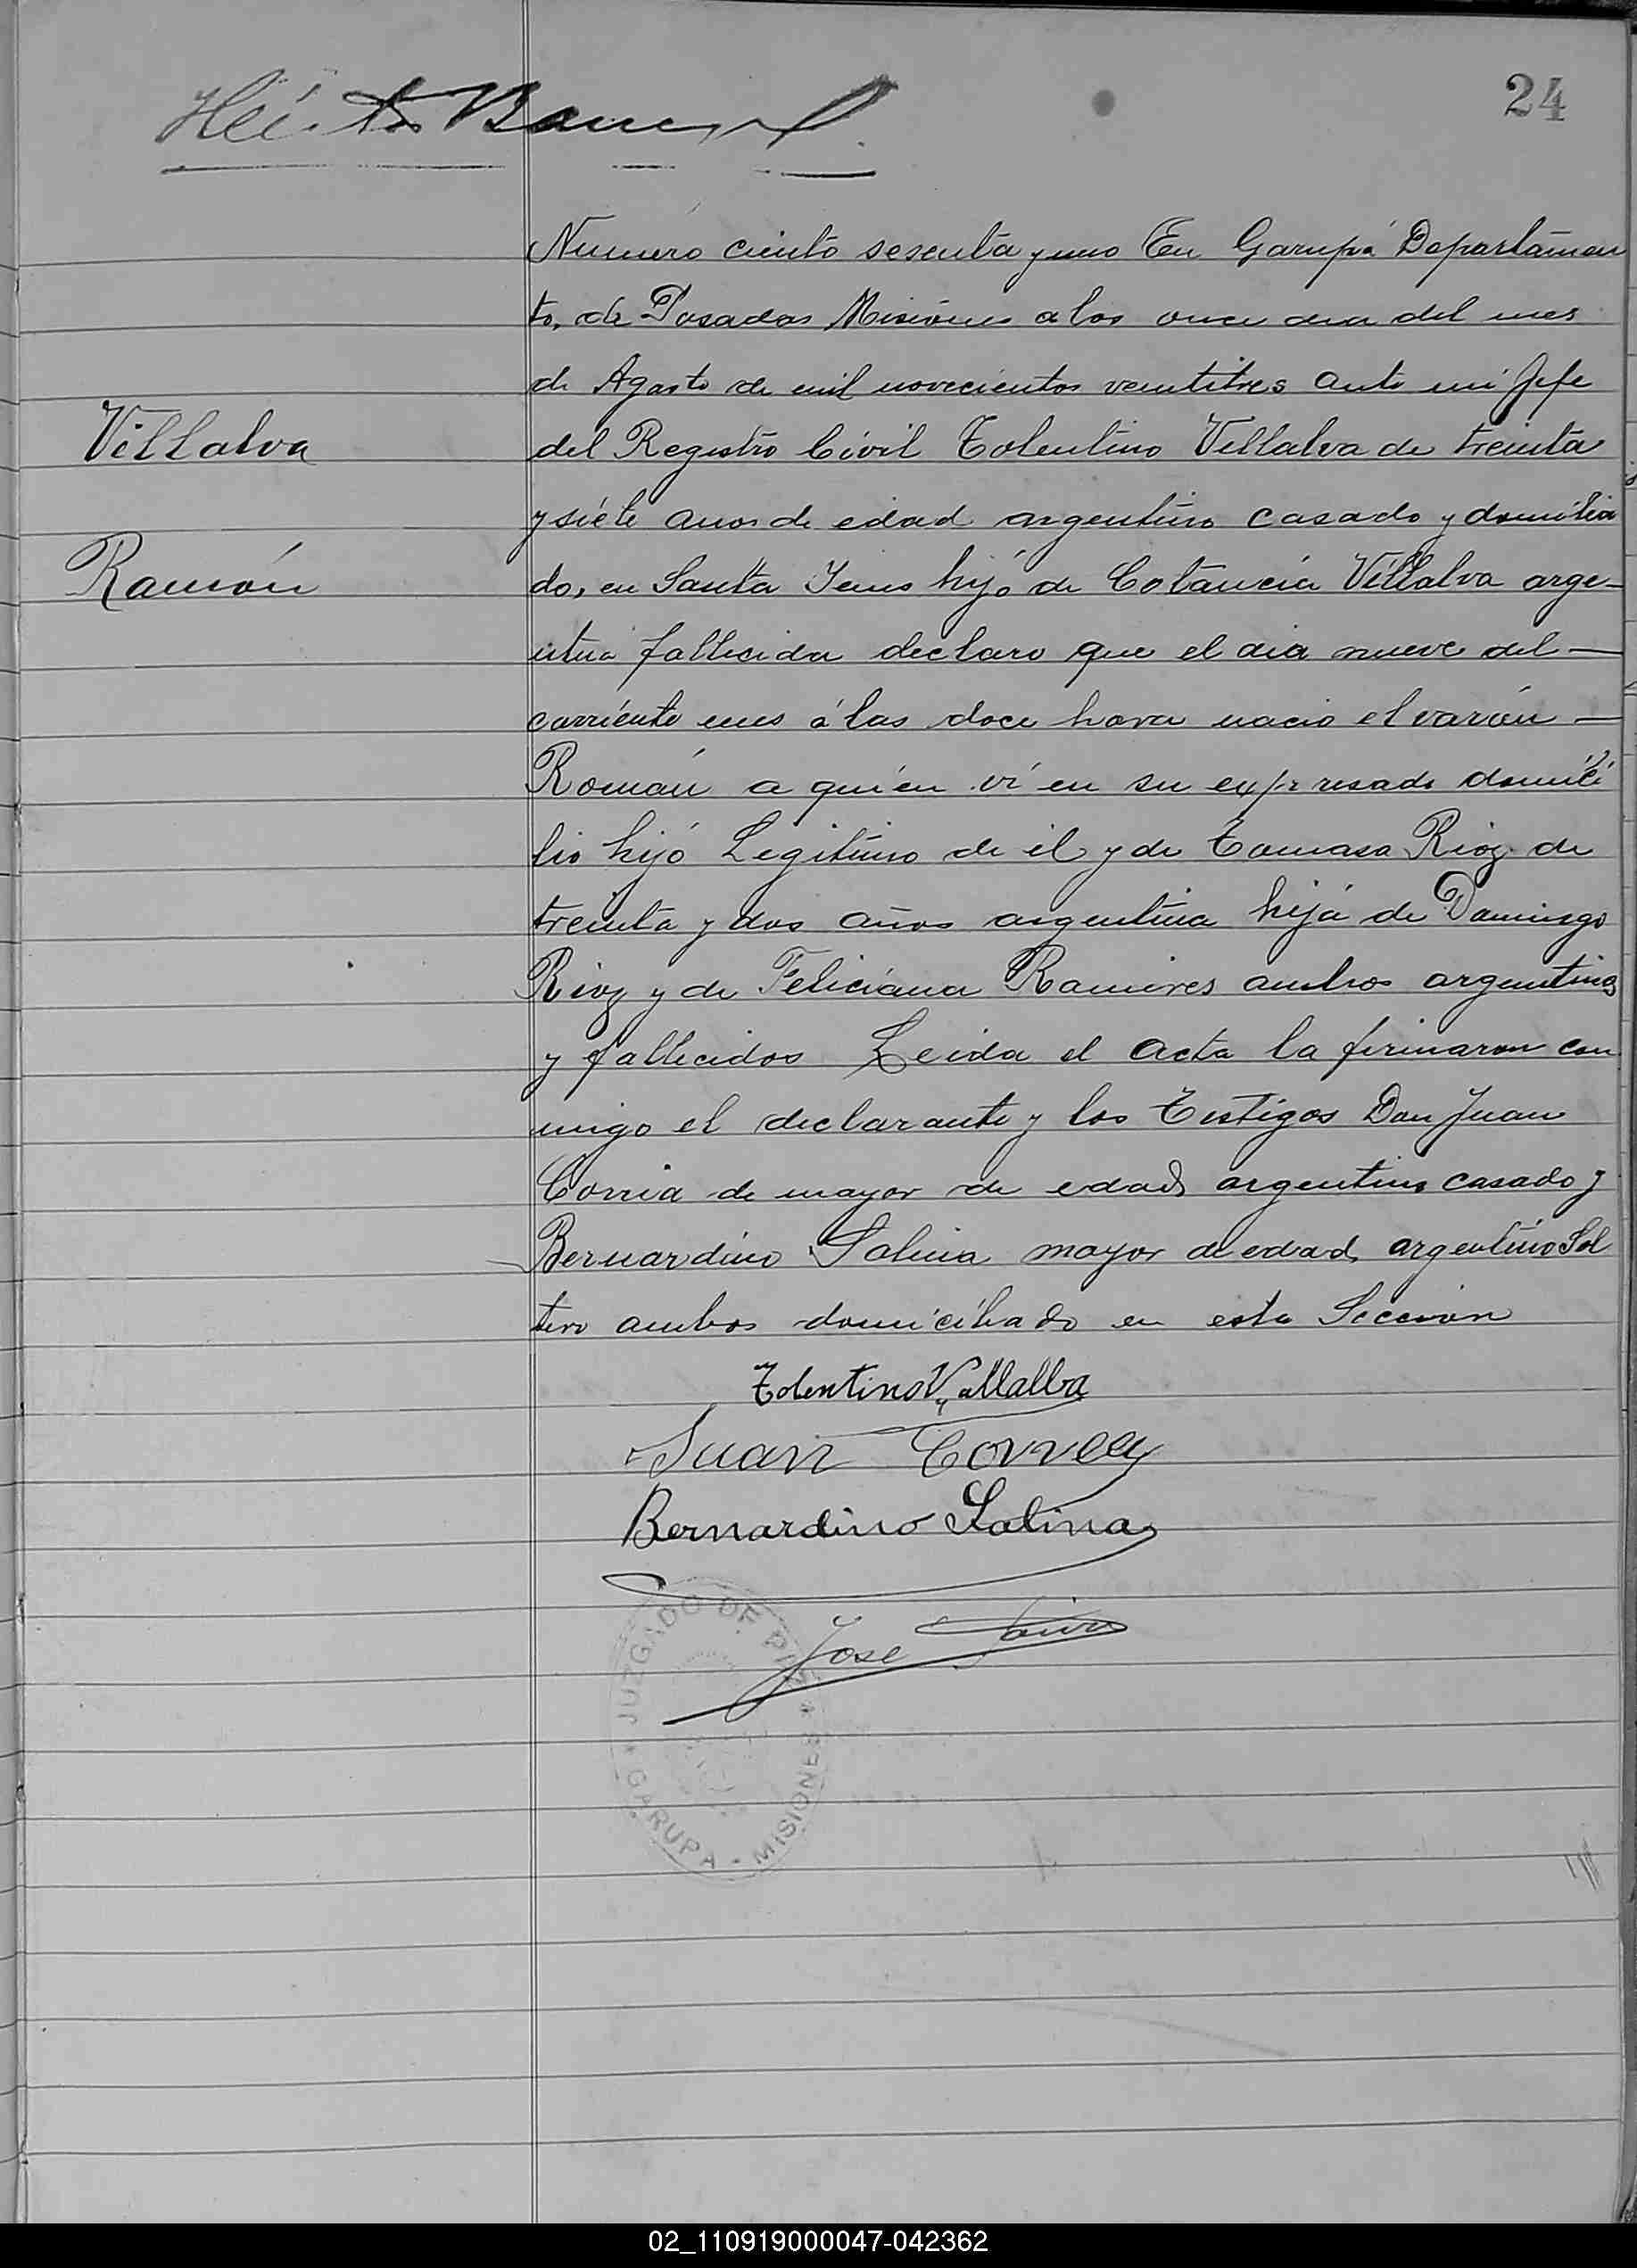 24
Numero ciento sesenta y uno En Garupá Departamen
to, de Posadas Misiones a los once dia del mes
de Agosto de mil novecientos veintitres ante mi Jefe
Villalva
del Registro Civil Tolentino Villalva de treinta
y siete anos de edad argentino casado y domicilia
Ramón
do, en Santa Ines hijó de Cotancia Villalva arge-
ntina fallecida declaro que el dia nueve del
corriente mes á las doce hora nacio el varón
Román a quien ví en su expresado domici
lio hijó Legitimo de él y de Tomasa Rioz de
treinta y dos años argentina hijá de Domingo
Rioz y de Feliciana Ramires ambos argentinos
y fallecidos Leida el acta la firmaron con
migo el declarante y los Testigos Don Juan
Corria de mayor de edad argentino casado y
Bernardino Salina mayor de edad argentino Sol
tero ambos domiciliado en esta Seccion
Tolentino Villalba
Juan Correa
Bernardino Salinas
Jose
JUZGADO DE PAZ
GARUPA - MISIONES
02_110919000047-042362